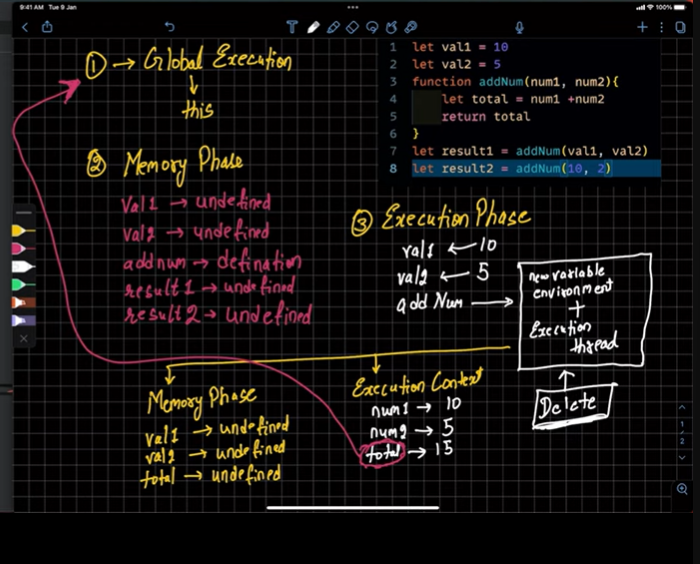 9:41 AM Tue 9 Jan
100%
① → Global Execution
↓
this
1 let val1 = 10
2 let val2 = 5
3 function addNum(num1, num2){
4 let total = num1 +num2
5 return total
6 }
7 let result1 = addNum(val1, val2)
8 let result2 = addNum(10, 2)
② Memory Phase
Val1 → undefined
val2 → undefined
addnum → defination
result1 → undefined
result2 → undefined
③ Execution Phase
val1 ← 10
val2 ← 5
add Num →
new variable
environment
+
Execution
thread
↑
Delete
Memory Phase
val1 → undefined
val2 → undefined
total → undefined
Execution Context
num1 → 10
num2 → 5
total → 15
1
2